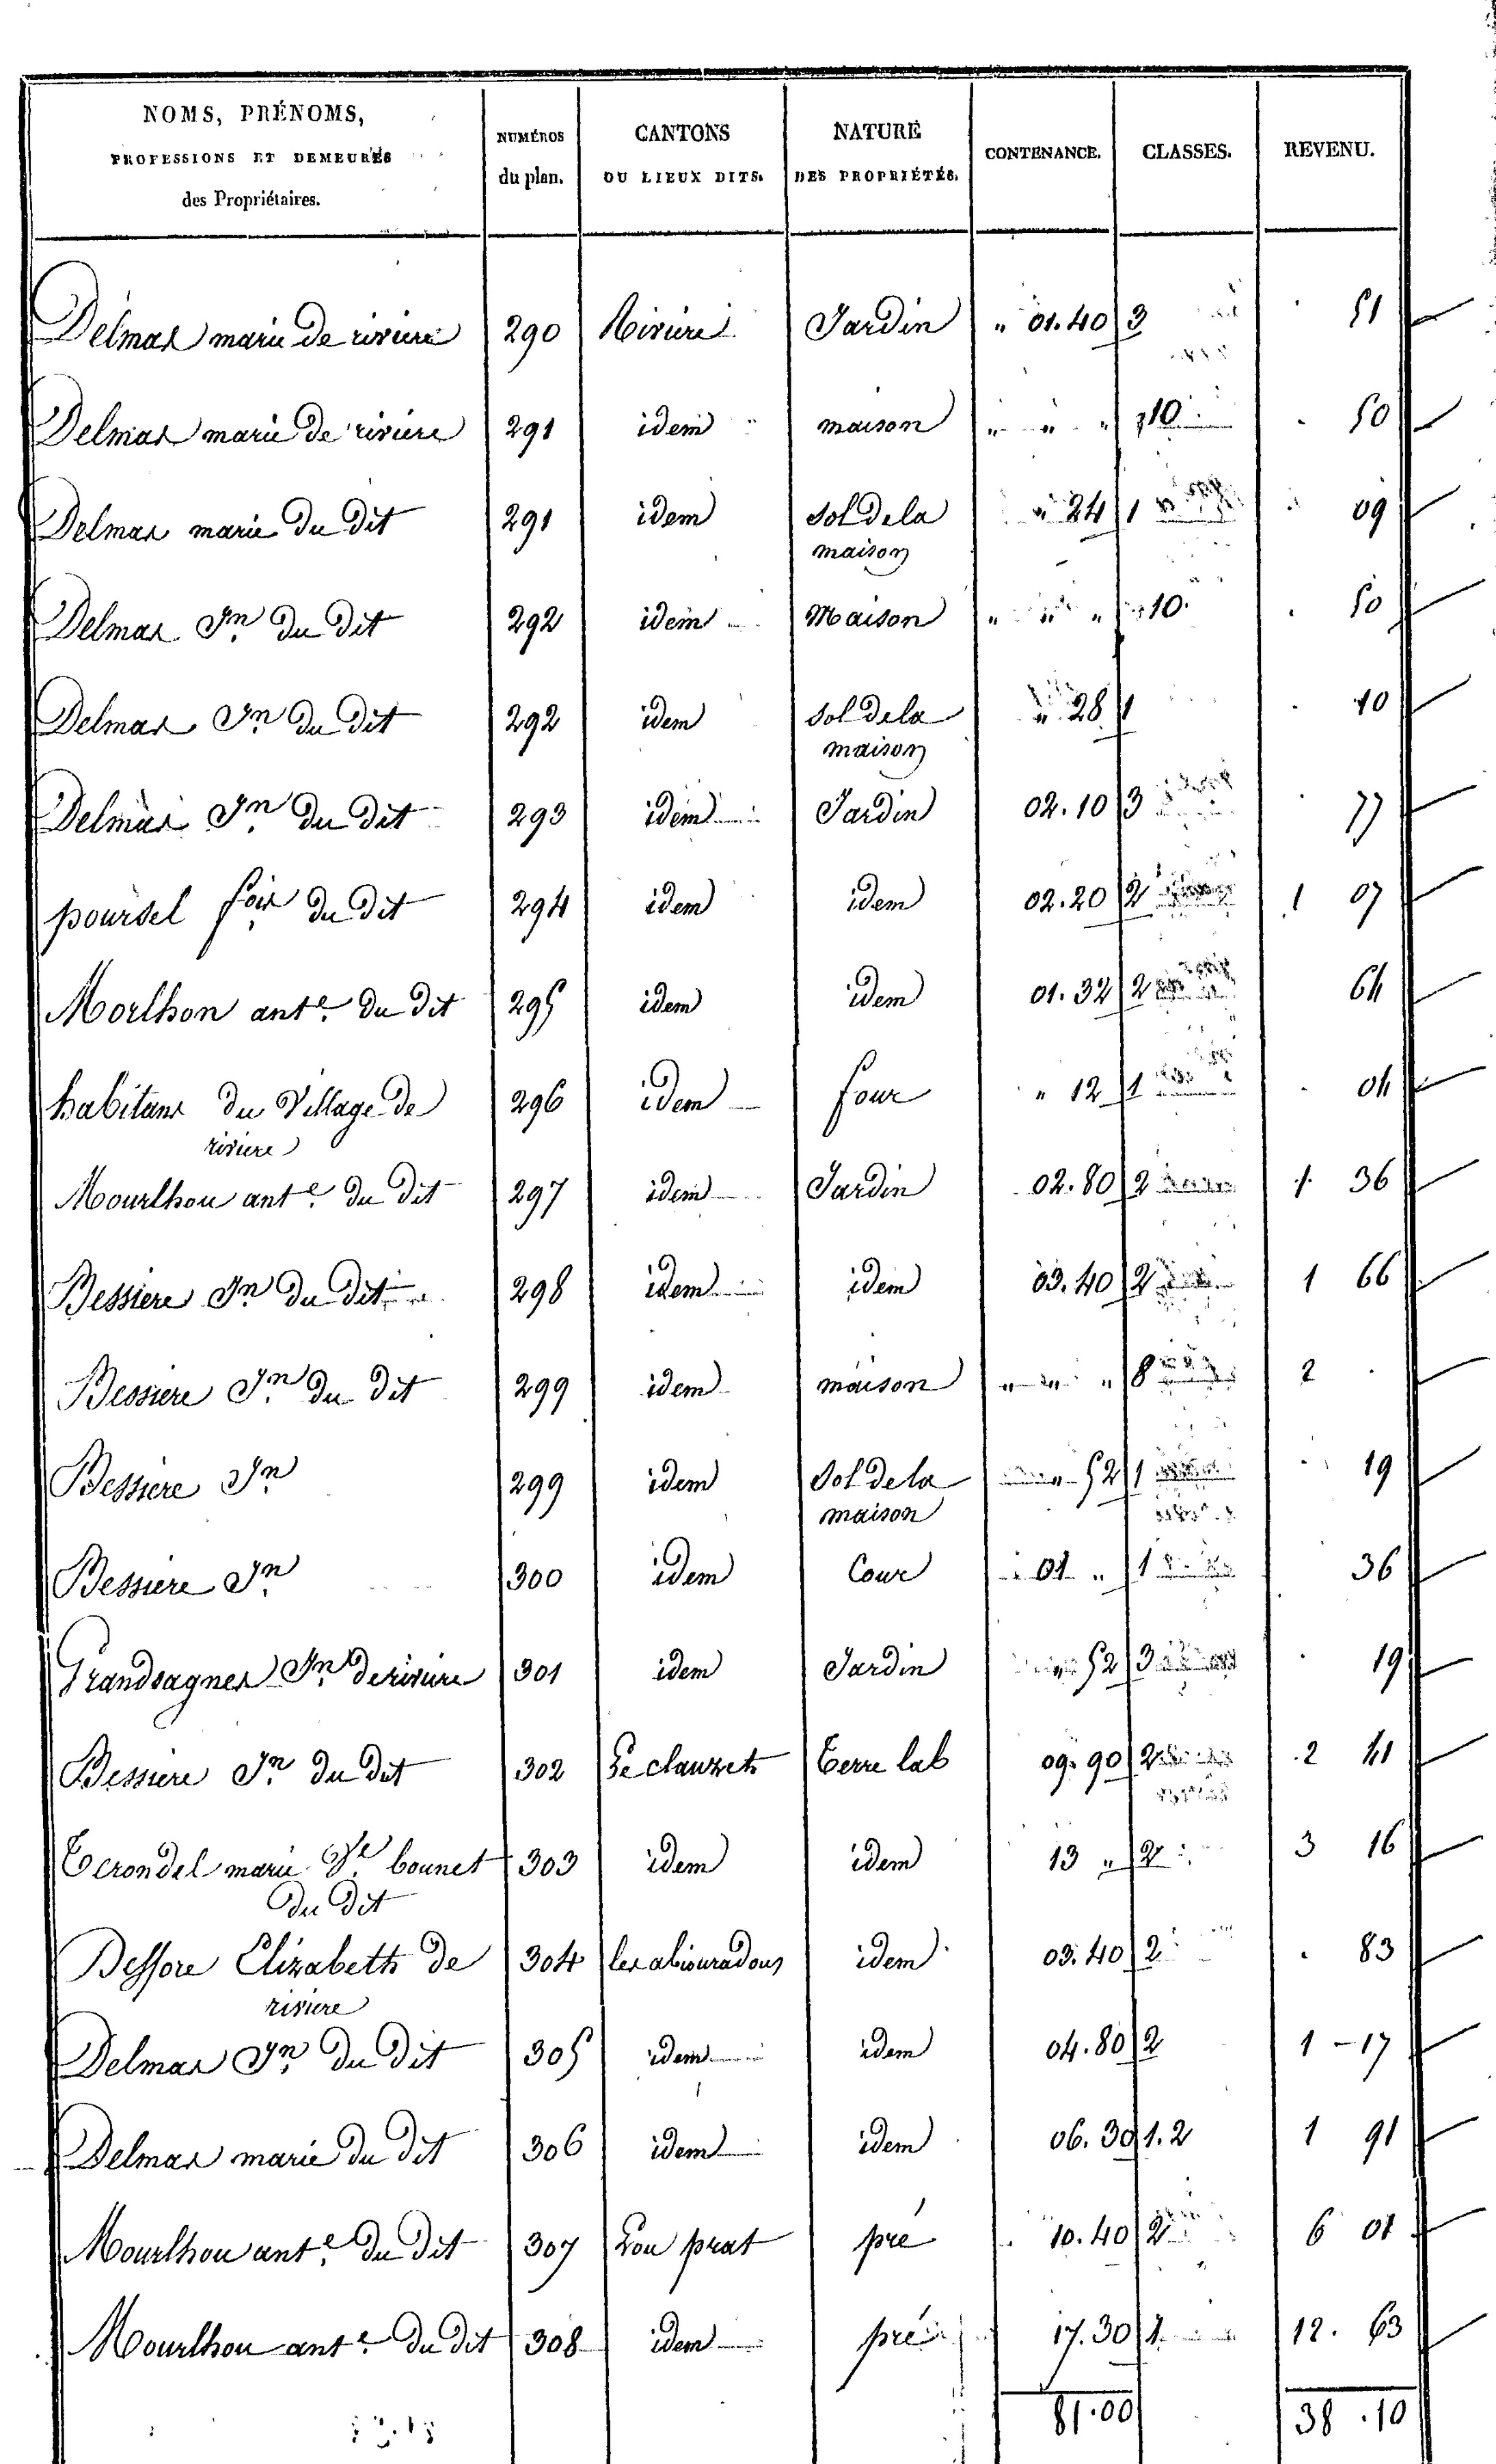 NOMS, PRÉNOMS, PROFESSIONS ET DEMEURES des Propriétaires. NUMÉROS du plan. CANTONS OU LIEUX DITS. NATURE DES PROPRIÉTÉS. CONTENANCE. CLASSES. REVENU.
Delmas marie de riviere 290 Riviere Jardin " 01.40 3 51
Delmas marie de riviere 291 idem maison " " " 10 50
Delmas marie du dit 291 idem Sol de la " 24 1 09
maison
Delmas Jn du dit 292 idem Maison " " " 10 50
Delmas Jn du dit 292 idem Sol de la " 28 1 10
maison
Delmas Jn du dit 293 idem Jardin 02.10 3 77
poursel fois du dit 294 idem idem 02.20 2 1 07
Morlhon ante du dit 295 idem idem 01.32 2 64
habitans du Village de 296 idem four " 12 1 04
riviere
Mourlhou ante du dit 297 idem Jardin 02.80 2 1. 36
Bessiere Jn du dit 298 idem idem 03.40 2 1 66
Bessiere Jn du dit 299 idem maison " " " 8 2 .
Bessiere Jn 299 idem Sol de la " 52 1 19
maison
Bessiere Jn 300 idem Cour 01 " 1 36
Grandsagnes Jn de riviere 301 idem Jardin " 52 3 19
Bessiere Jn du dit 302 Le clauzet Terre lab 09.90 2 2 41
marie Ve bounet 303 idem idem 13 " 2 3 16
du dit
Bessore Elizabeth de 304 les abiouradous idem 03.40 2 . 83
riviere
Delmas Jn du dit 305 idem idem 04.80 2 1 - 17
Delmas marie du dit 306 idem idem 06.30 1.2 1 91
Mourlhou ante du dit 307 Lou prat pré 10.40 2 6 01
Mourlhou ante du dit 308 idem pré 17.30 1 12. 63
81.00 38.10